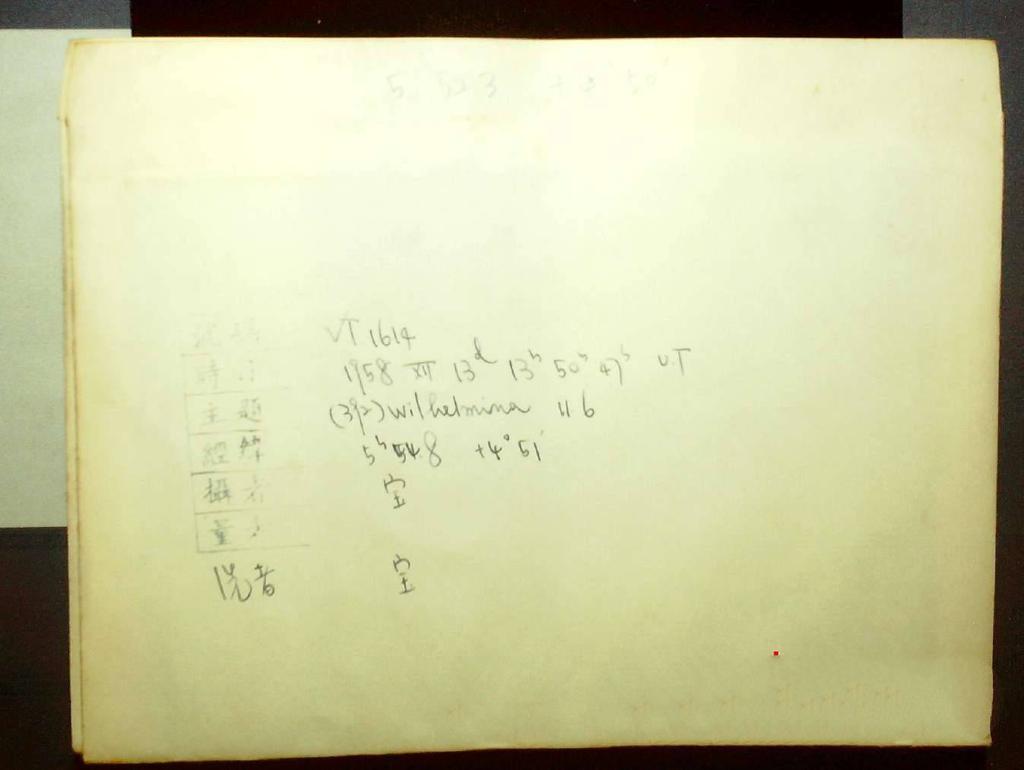 5 523 +4 50
VT 1614
時 1958 XII 13ᵈ 13ʰ 50ᵐ 47ˢ UT
主題 (392) wilhelmina 11 6
經緯 5ʰ 54.8 +4° 51'
攝者 宝
量者
洗者 宝